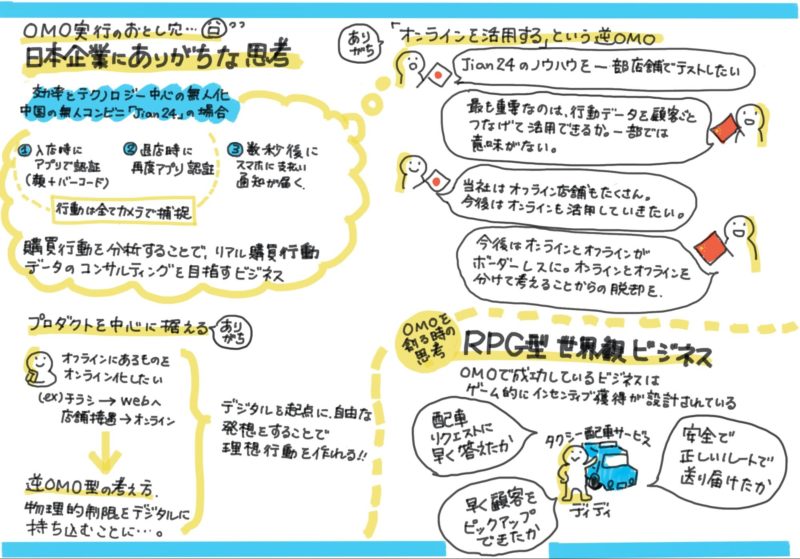 OMO実行のおとし穴…
日本企業にありがちな思考
効率とテクノロジー中心の無人化
中国の無人コンビニ「Jian24」の場合
① 入店時に
アプリで認証
(顔+バーコード)
② 退店時に
再度アプリ認証
③ 数秒後に
スマホに支払い
通知が届く.
行動は全てカメラで捕捉
購買行動を分析することで、リアル購買行動
データのコンサルティングを目指すビジネス
プロダクトを中心に据える
ありがち
オフラインにあるものを
オンライン化したい
(ex)チラシ→webへ
店舗接遇→オンライン
逆OMO型の考え方.
物理的制限をデジタルに
持ち込むことに…。
デジタルを起点に、自由な
発想をすることで
理想行動を作れる!!
ありがち
「オンラインを活用する」という逆OMO
Jian24のノウハウを一部店舗でテストしたい
最も重要なのは、行動データを顧客ごと
つなげて活用できるか。一部では
意味がない。
当社はオフライン店舗もたくさん。
今後はオンラインも活用していきたい。
今後はオンラインとオフラインが
ボーダーレスに。オンラインとオフラインを
分けて考えることからの脱却を.
OMOを
創る時の
思考
RPG型 世界観ビジネス
OMOで成功しているビジネスは
ゲーム的にインセンティブ獲得が設計されている
配車
リクエストに
早く答えたか
タクシー配車サービス
安全で
正しいルートで
送り届けたか
早く顧客を
ピックアップ
できたか
ディディ